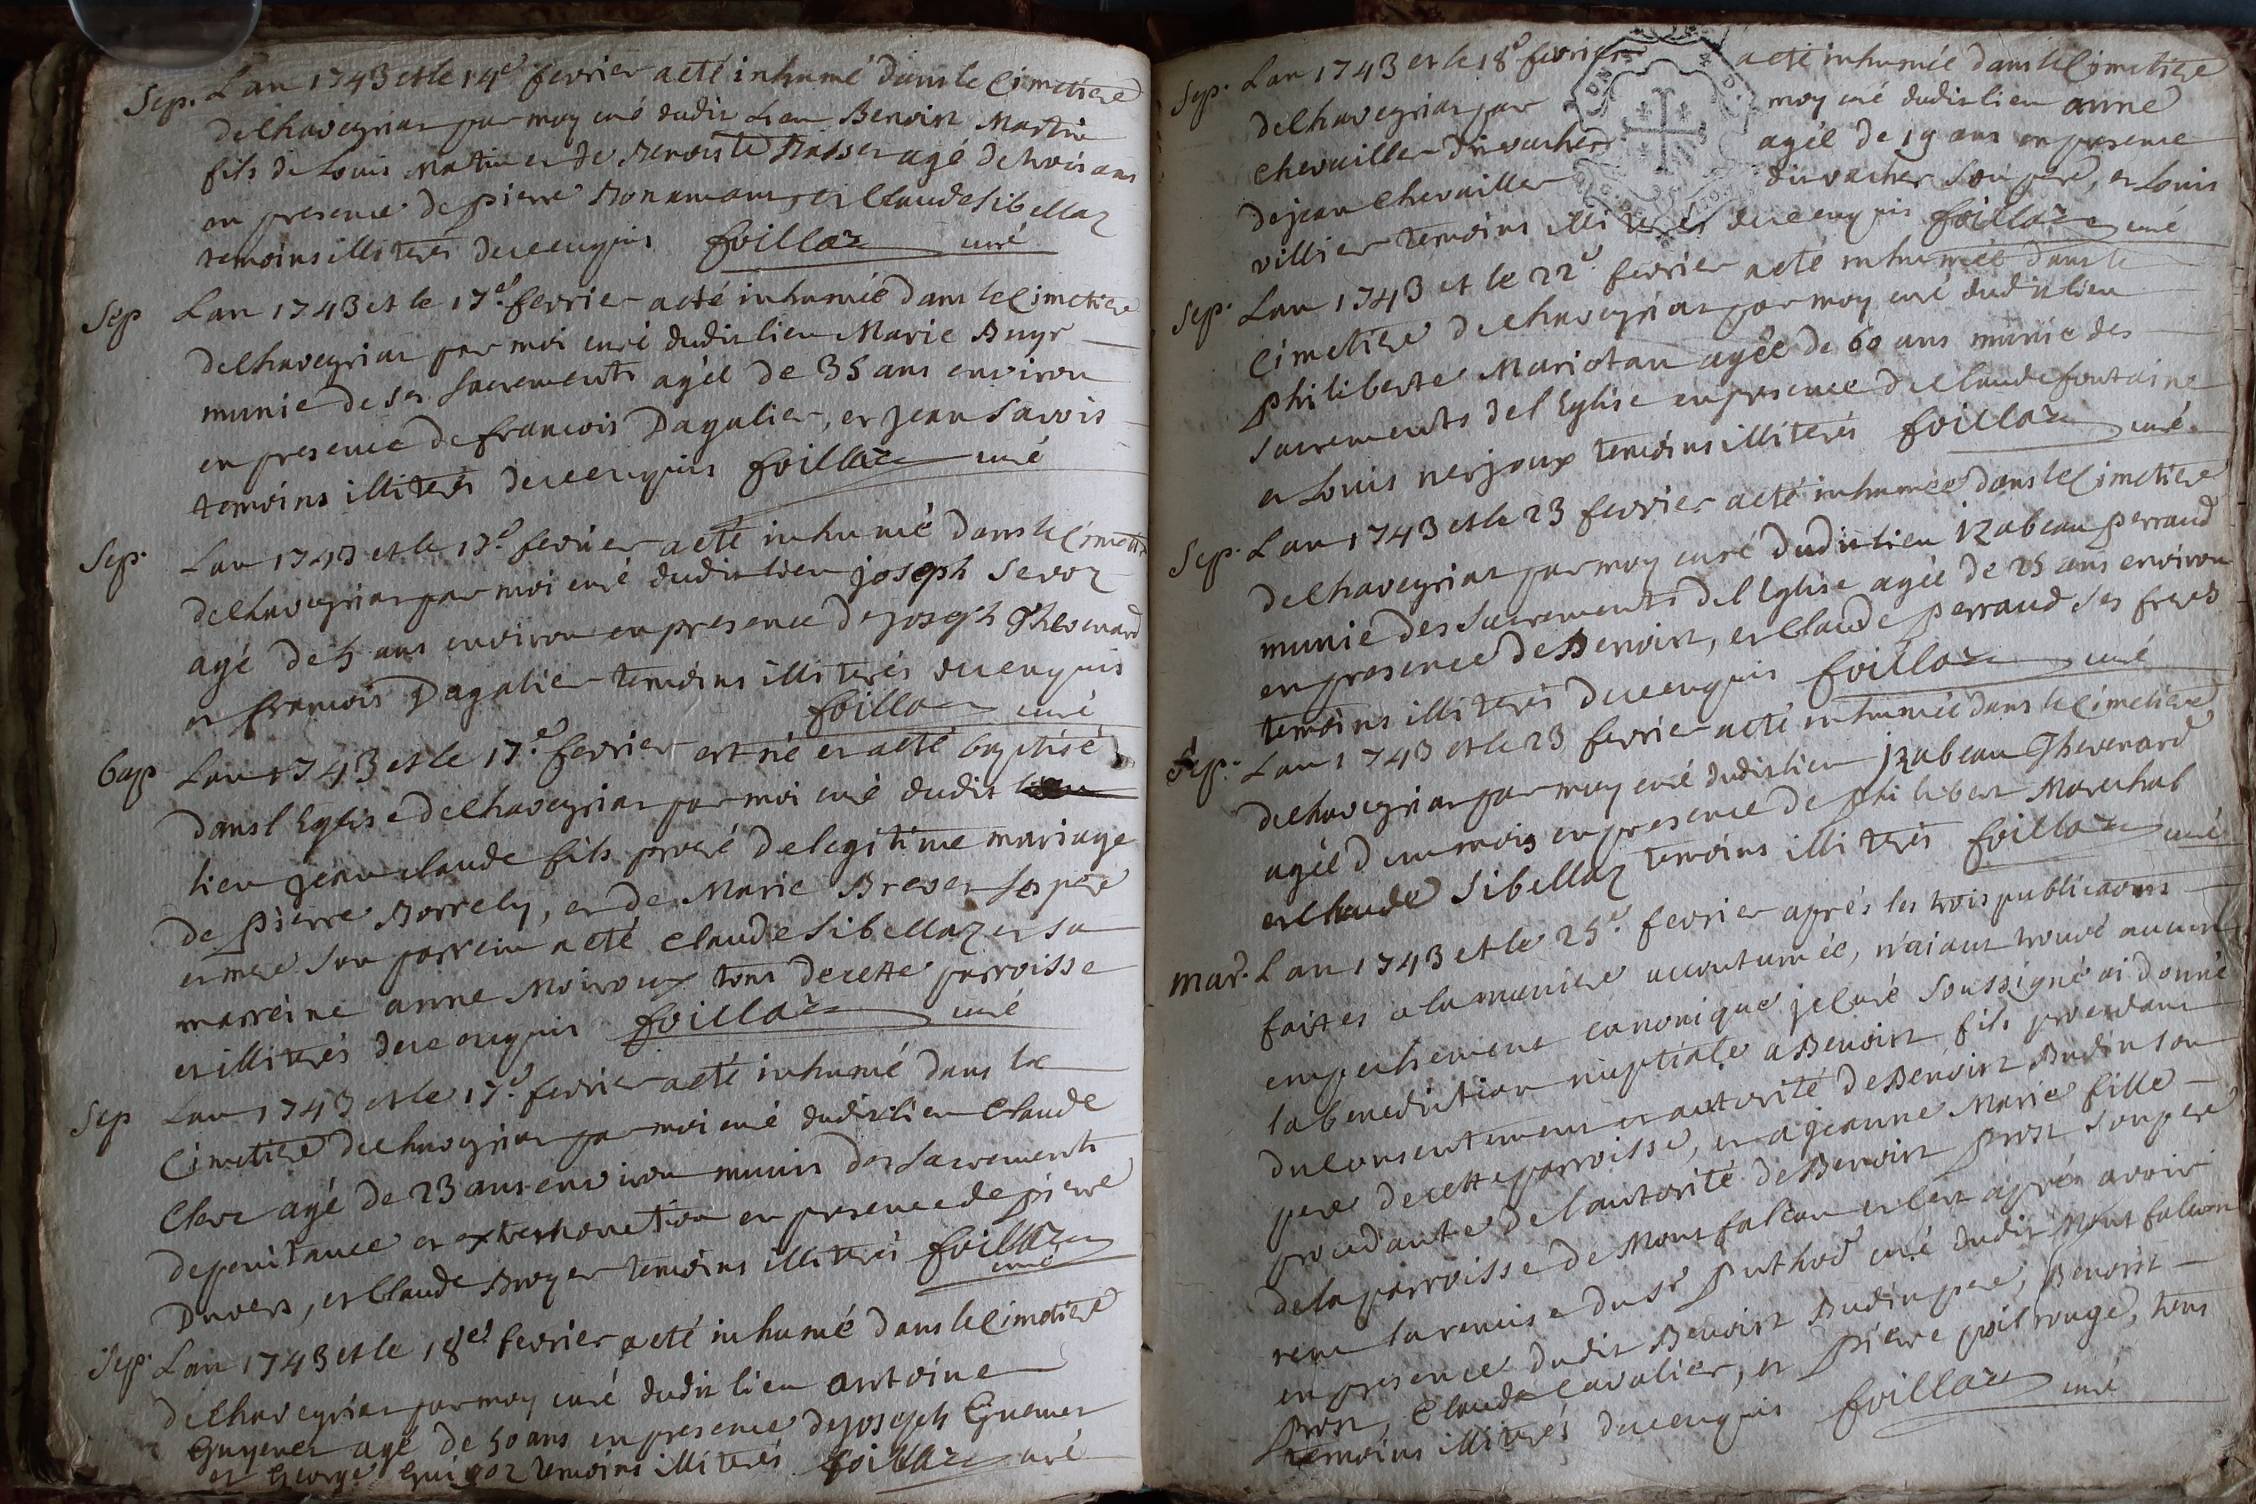 Sep. Lan 1743 et le 14e fevrier a eté inhumé dans le Cimetiere
de Chaveyriat par moy curé dudit Lieu Benoist Martin
fils de Louis Matin et de Benoiste agé de trois ans
en presence de pierre Bonamour et Claude Sibellaz
temoins illiterés de ce enquis foillaz curé
Sep Lan 1743 et le 17e fevrier a eté inhumée dans le Cimetiere
de Chaveyriat par moi curé dudit lieu Marie Buyr
munie de ses Sacrements agée de 35 ans environ
en presence de francois Dagalier, et Jean Savois
temoins illiterés de ce enquis foillaz curé
Sep. Lan 1743 et le 17e fevrier a eté inhumé dans le Cimetie
de Chaveyriat par moi curé dudit lieu joseph Sevoz
agé de 5 ans environ en presence de joseph Thevenard
et francois Dagalier temoins illiterés de ce enquis
foillaz curé
bap Lan 1743 et le 17e fevrier est né et a eté baptisé
dans l'Eglise de Chaveyriat par moi curé dudit
lieu jean claude fils procré de legitime mariage
de Pierre Borrely, et de Marie Breset ses pere
et mere son parrein a eté Claude Sibellaz et sa
marreine anne Moiroux tous de cette parroisse
et illiterés de ce enquis foillaz curé
Sep Lan 1743 et le 17e fevrier a eté inhumé dans le
Cimetiere de Chaveyriat par moi curé dudit lieu Claude
Clerc agé de 23 ans environ munis des Sacrements
de penitance et extrem onction en presence de pierre
Duvers, et Claude Broyer temoins illiterés foillaz
curé
Sep. Lan 1743 et le 18e fevrier a eté inhumé dans le Cimetiere
de Chaveyriat par moy curé dudit lieu antoine
Guyenet agé de 50 ans en presence de joseph Guenet
et George Guigoz temoins illiterés foillaz curé
Sep. Lan 1743 et le 18e fevrier a eté inhumée dans le Cimetiere
de Chaveyriat par moy curé dudit lieu anne
Chevailler divacher agée de 19 ans en presence
de jean Chevailler divacher son pere, et Louis
villier temoins illiterés de ce enquis foillaz curé
Sep. Lan 1743 et le 22e fevrier a eté inhumée dans le
Cimetiere de Chaveyriat par moy curé dudit lieu
philiberte Mariotan agée de 60 ans munie des
Sacrements de l'Eglise en presence de Claude fontaine
et Louis nerjoux temoins illiterés foillaz curé
Sep. Lan 1743 et le 23 fevrier a eté inhumée dans le Cimetiere
de Chaveyriat par moy curé dudit lieu izabeau perraud
munie des Sacrements de l'Eglise agée de 25 ans environ
en presence de Benoist, et Claude perraud ses freres
temoins illiterés de ce enquis foillaz curé
Sep. Lan 1743 et le 23 fevrier a eté inhumée dans le Cimetiere
de Chaveyriat par moy curé dudit lieu izabeau Thevenard
agée d'un mois en presence de philibert Marechal
et Claude Sibellaz temoins illiterés foillaz curé
mar. Lan 1743 et le 25e fevrier aprés les trois publications
faites a la maniere accoutumée, n'aiant trouvé aucun
empechement canonique je curé Soussigné ai donné
la benediction nuptiale a Benoist fils procedant
du Consentement et autorité de Benoist Budin son
pere de cette parroisse, et a jeanne Marie fille
procedante de l'autorité de Benoist prost son pere
de la parroisse de Montfalcon et cest aprés avoir
receu la remise du Sr puthod curé dudit Montfalcon
en presence dudit Benoist Budin pere, Benoist
prost, Claude Cavalier, et pierre poilrouge, tous
temoins illiterés de ce enquis foillaz curé